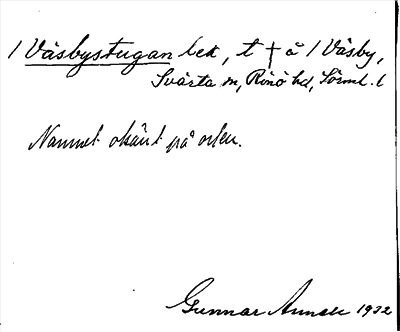 / Väsbystugan bet, t † å / Väsby,
Svärta sn, Rönö hd, Sörml. l
Namnet okänt på orten.
Gunnar 1932